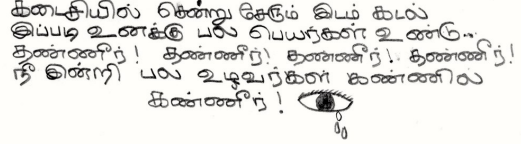 கடைசியில் சென்று சேரும் இடம் கடல்
இப்படி உனக்கு பல பெயர்கள் உண்டு..
தண்ணீர்! தண்ணீர்! தண்ணீர்! தண்ணீர்!
நீ இன்றி பல உழவர்கள் கண்ணில்
கண்ணீர்!